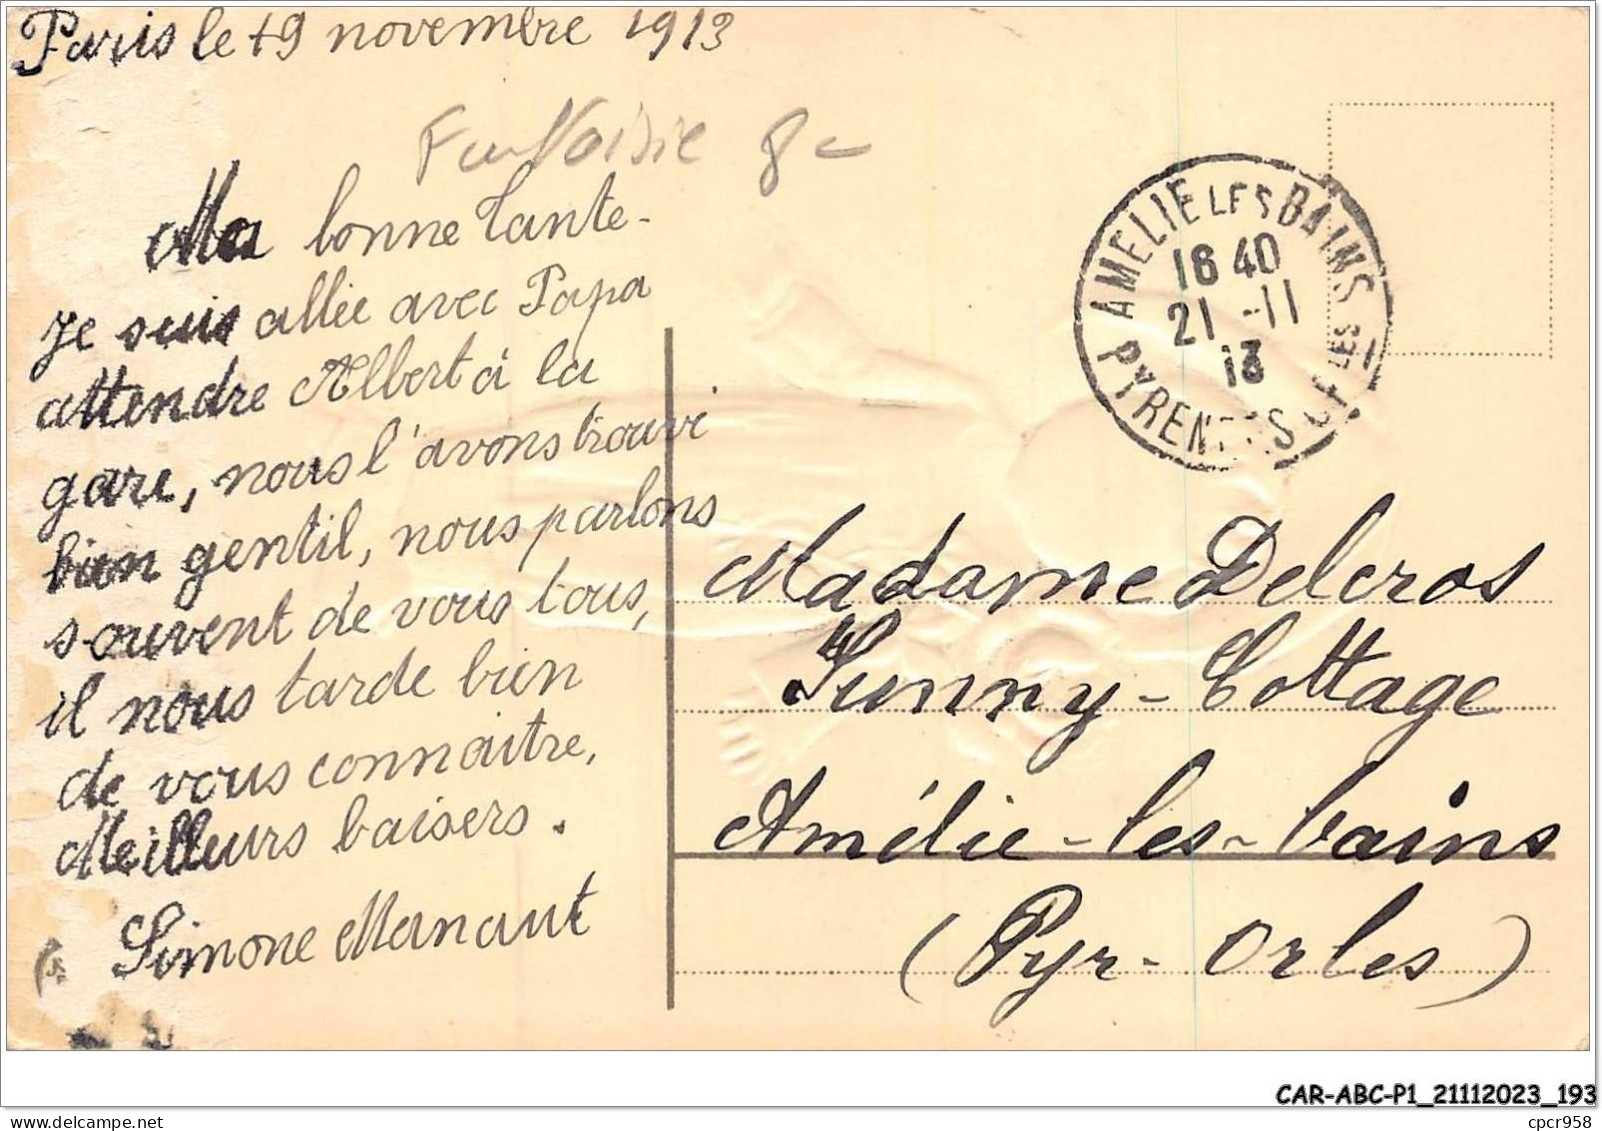 Paris le 19 novembre 1913
8 -
Ma bonne Tante -
Je suis allée avec Papa
attendre Albert à la
gare, nous l'avons trouvé
bien gentil, nous parlons
souvent de vous tous,
il nous tarde bien
de vous connaître,
Meilleurs baisers.
Simone Manaut
AMELIE LES BAINS
16 40
21 -11
13
PYRENEES OR LES
Madame Delcros
Sunny - Cottage
Amélie-les-bains
(Pyr- Orles)
CAR-ABC-P1_21112023_193
cpcr958